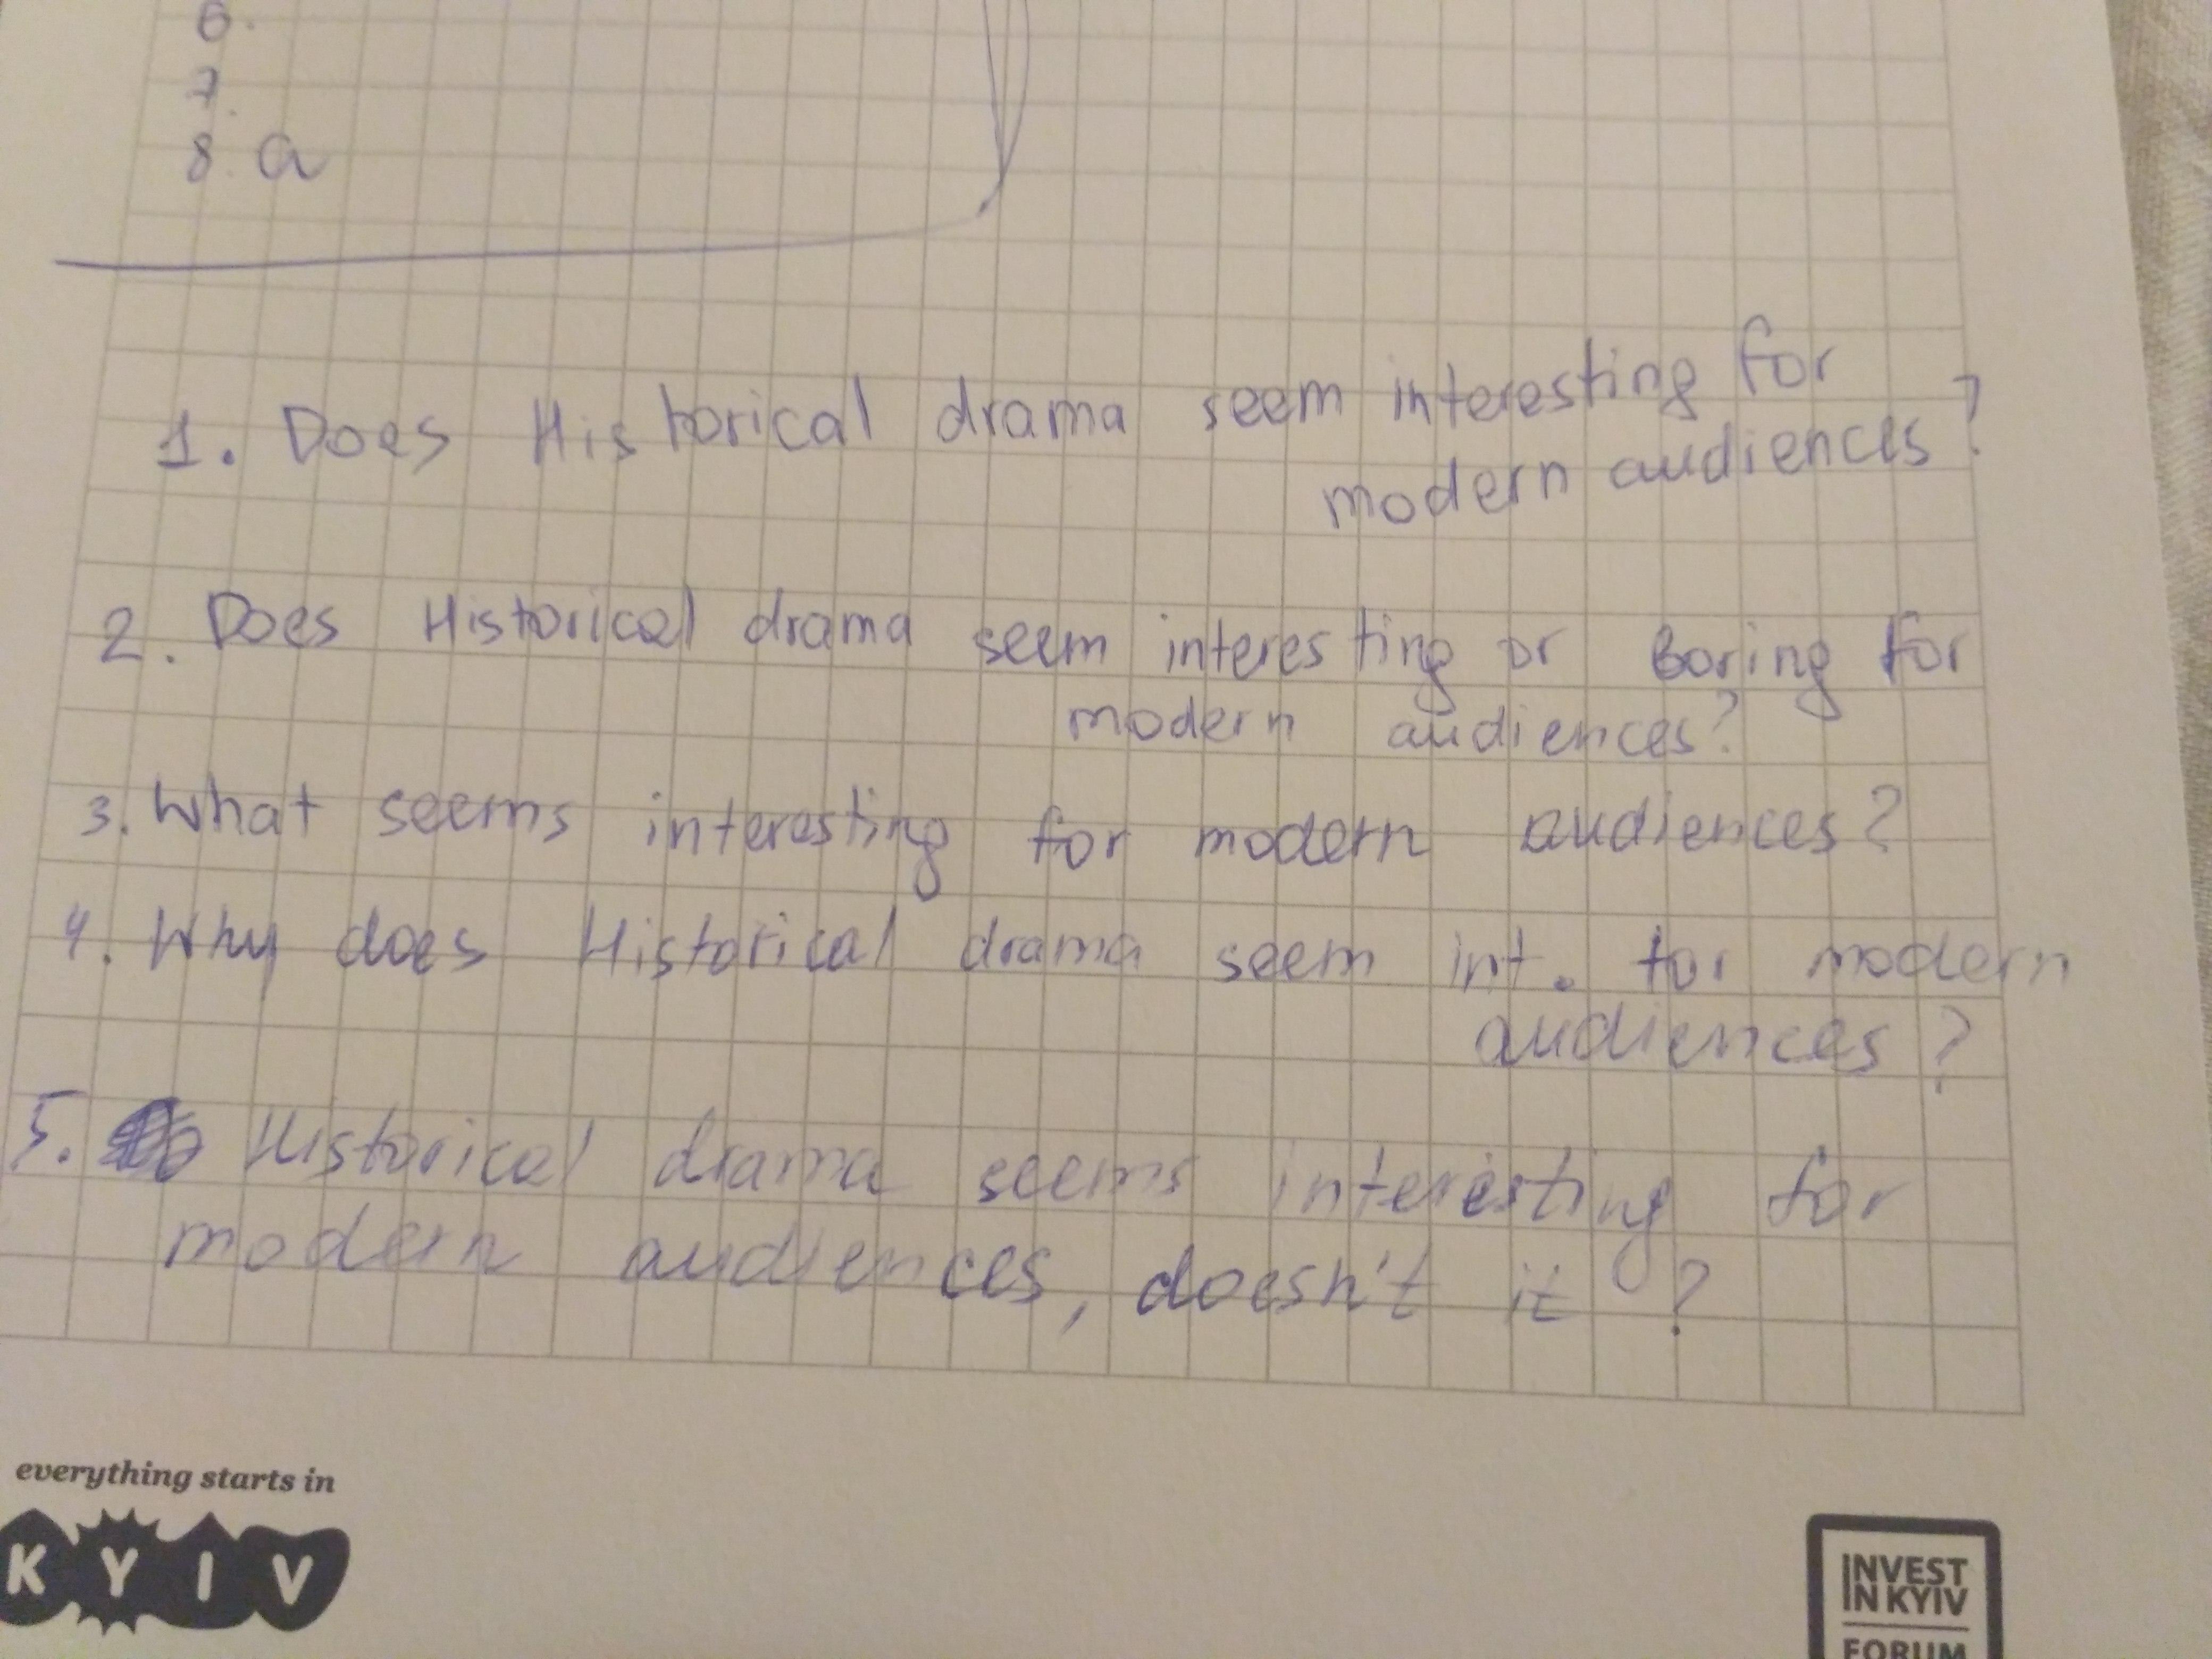 6.
7.
8. a
1. Does Historical drama seem interesting for
modern audiences?
2. Does Historical drama seem interesting or Boring for
modern audiences?
3. What seems interesting for modern audiences?
4. Why does Historical drama seem int. for modern
audiences?
5. Historical drama seems interesting for
modern audiences, doesn't it?
everything starts in
KYIV
INVEST
IN KYIV
FORUM